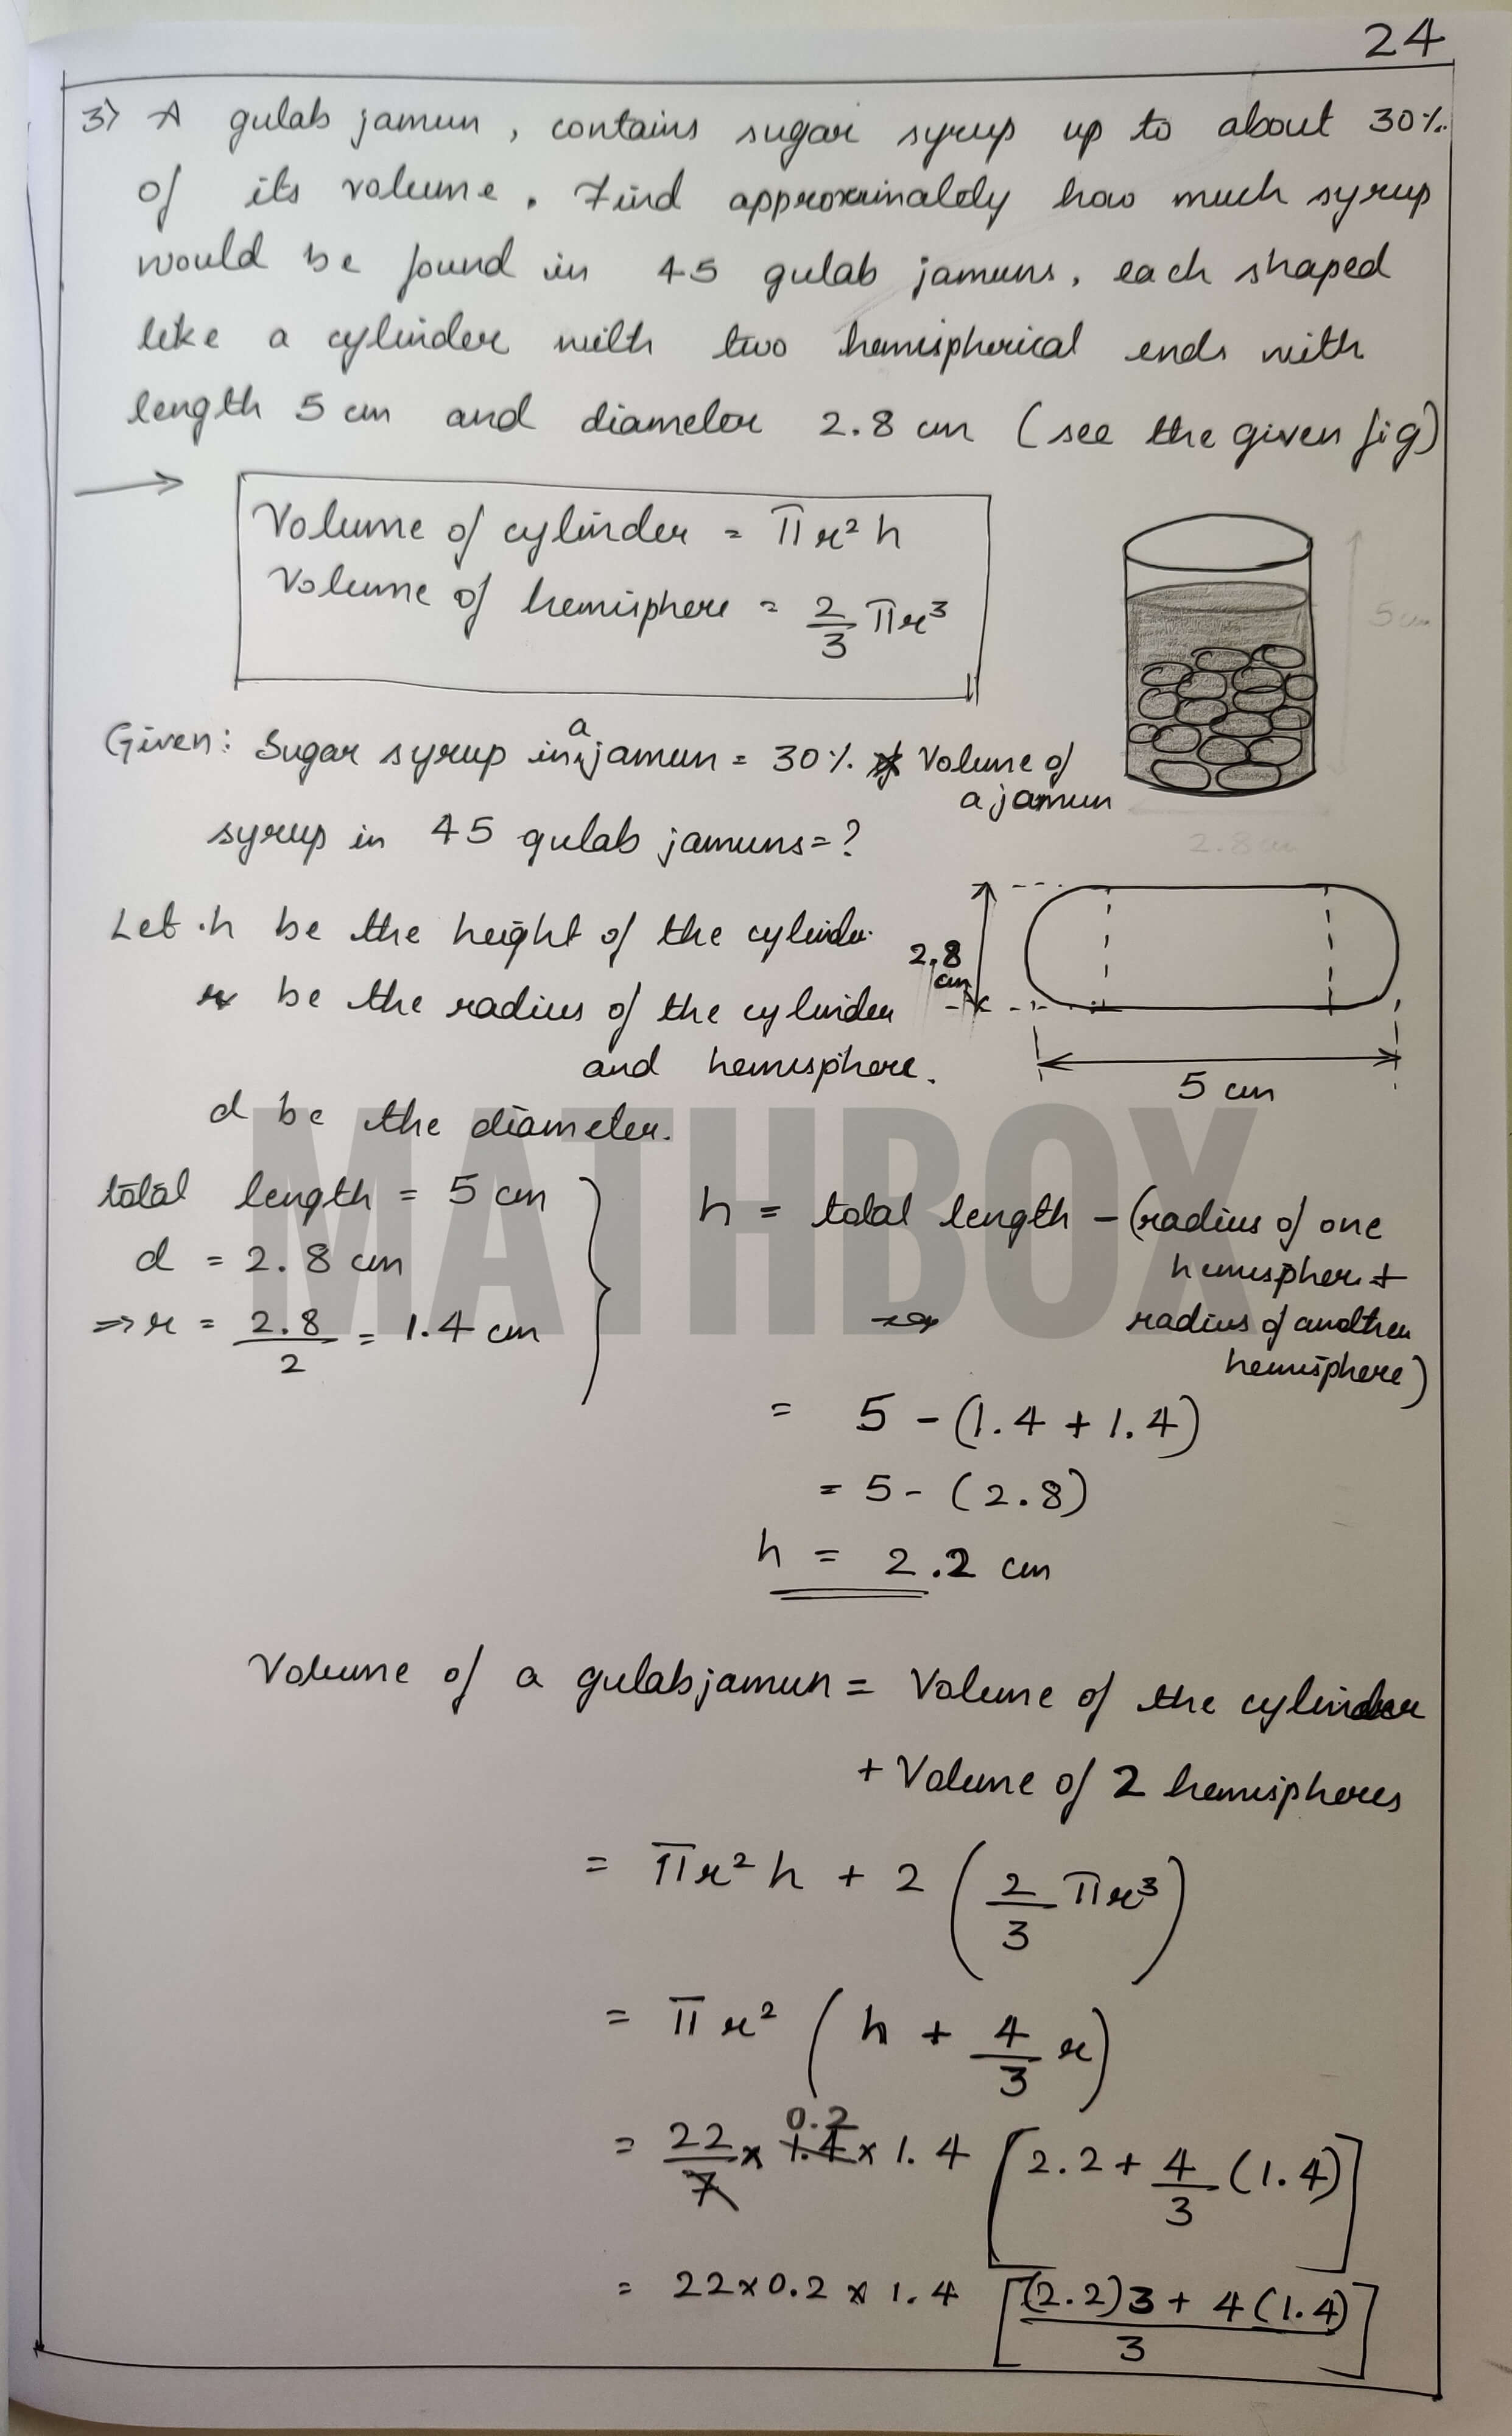 24
3) A gulab jamun, contains sugar syrup up to about 30%
of its volume. Find approximately how much syrup
would be found in 45 gulab jamuns, each shaped
like a cylinder with two hemispherical ends with
length 5 cm and diameter 2.8 cm (see the given fig)
→ Volume of cylinder = πr²h
Volume of hemisphere = 2/3 πr³
5 cm
2.8 cm
Given: Sugar syrup in a jamun = 30% of Volume of
a jamun
syrup in 45 gulab jamuns = ?
Let h be the height of the cylinder
r be the radius of the cylinder
and hemisphere.
d be the diameter.
2.8
cm
5 cm
MATHBOX
total length = 5 cm
d = 2.8 cm
⇒ r = 2.8/2 = 1.4 cm
h = total length - (radius of one
hemisphere +
radius of another
hemisphere)
= 5 - (1.4 + 1.4)
= 5 - (2.8)
h = 2.2 cm
Volume of a gulabjamun = Volume of the cylinder
+ Volume of 2 hemispheres
= πr²h + 2 (2/3 πr³)
= πr² (h + 4/3 r)
0.2
= 22/7 × 1.4 × 1.4 [2.2 + 4/3 (1.4)]
= 22 × 0.2 × 1.4 [(2.2)3 + 4(1.4)/3]